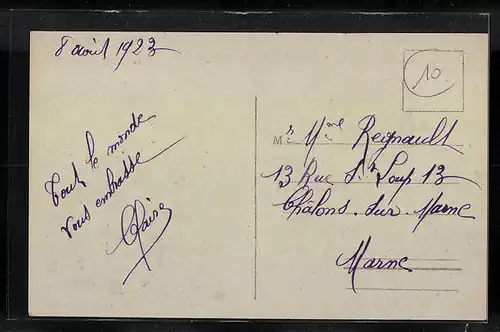 8 avril 1923
Tout le monde
vous embrasse
Claire
10
M r Mme Regnault
13 Rue St Loup 13
Châlons-sur-Marne
Marne